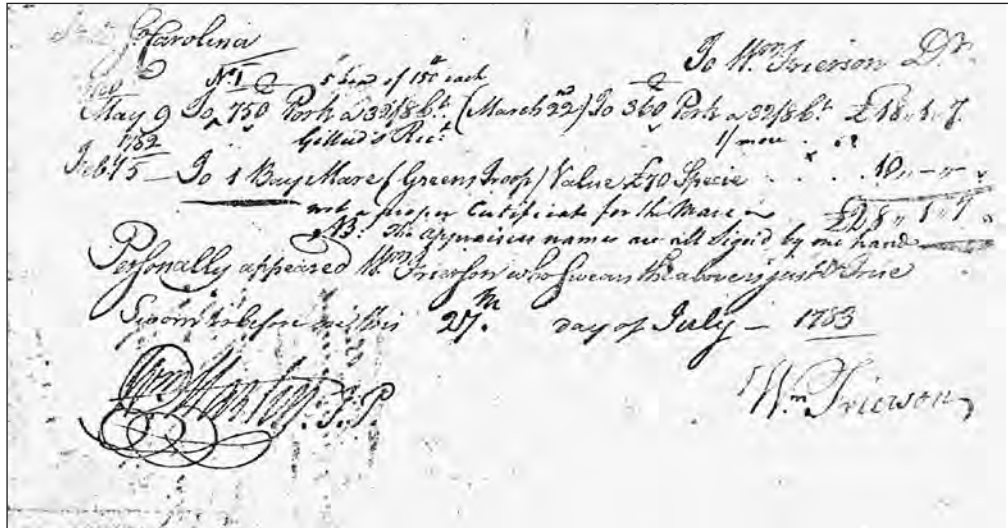 So Carolina
To Wm Frierson Dr
No 1 5 head of 150 each
May 9 To 750 Pork a 32/8 Ct. (March 22nd) To 360 Pork a 32/8 Ct. £18,, 1,, 7
1782 Rect 1/ more
Feby 15 — To 1 Bay Mare (Greens Troop) Value £70 Specie . . . 10,, – ,, –
not a proper Certificate for the Mare £28,, 1,, 7
NB: the appraisers names are all Sign'd by one hand
Personally appeared Wm Frierson who swears the above is just & True
Sworn to before me this 27th day of July — 1783
J:P
Wm Frierson